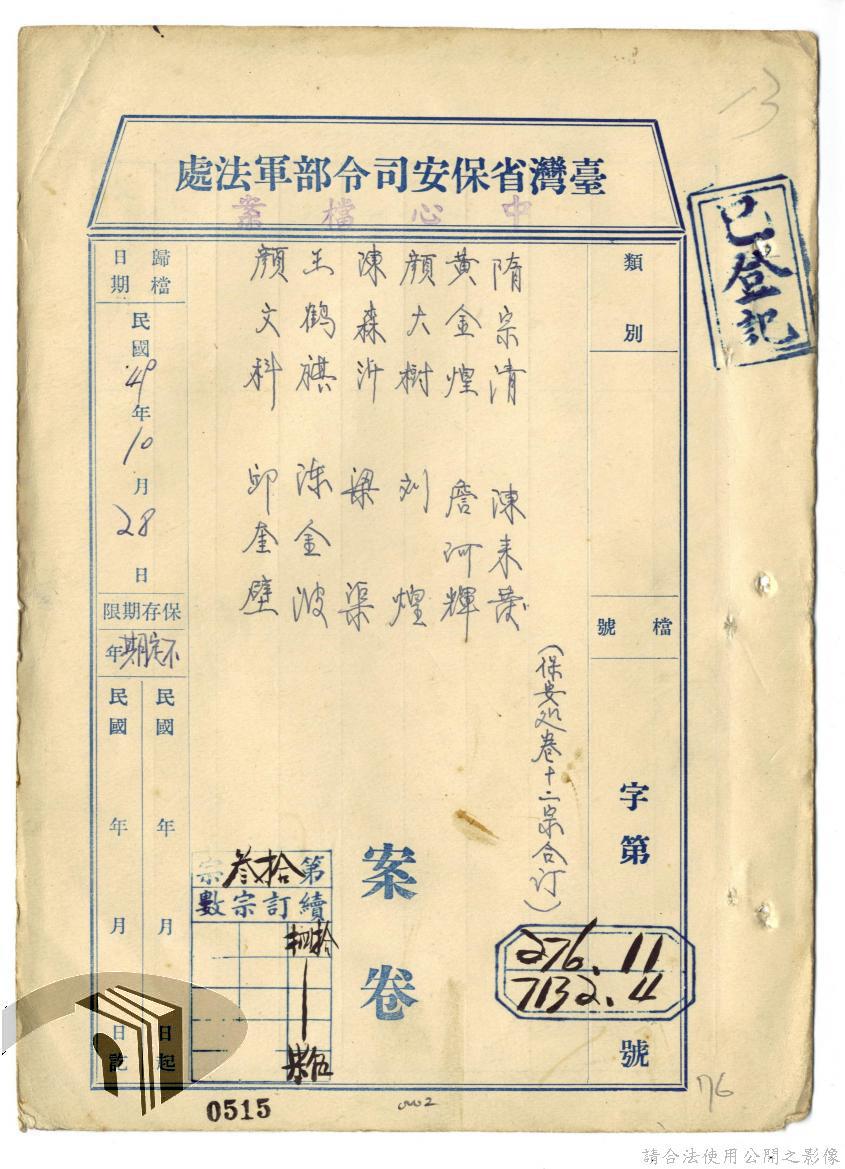 臺灣省保安司令部軍法處
中心檔案
已登記
類別
檔號
字第
276.11
7132.4
號
隋宗清 陳来發
黃金煌 詹河輝
顏大樹 刘煌
陳森沂 梁渠
王鹤祺 陈金波
顏文科 邱奎壁
(保安处卷十二宗合订)
案卷
第拾叁宗
續訂宗數
歸檔日期
民國49年10月28日
保存期限
不定期年
民國 年 月 日起
民國 年 月 日訖
0515
0002
13
76
請合法使用公開之影像